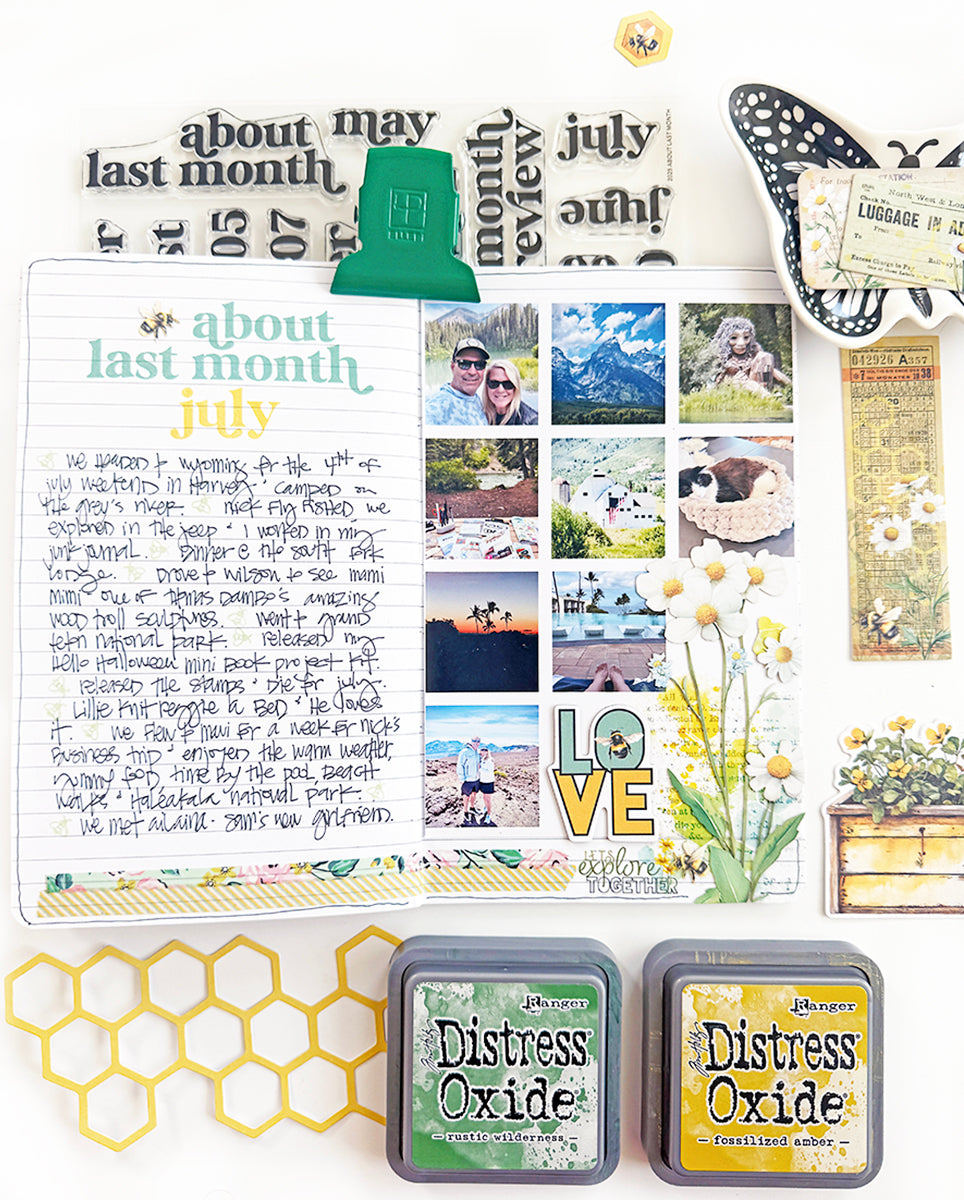 about
last month
may
month
review
july
june
2023 ABOUT LAST MONTH
05
07
ELLEN
STATION
For
North West & Lon
Check No.
LUGGAGE IN AD
From
To
Excess Charge to Pay
Railway
042926 A 357
about
last month
july
we headed to wyoming for the 4th of
july weekend in Harvey + camped on
the grey's river. nick fly fished we
explored in the jeep + I worked in my
junk journal. dinner @ the south fork
lodge. drove to wilson to see mami
mimi one of thomas Dambo's amazing
wood troll sculptures. went to grand
teton national park. released my
Hello Halloween mini book project kit.
released the stamps + die for july.
lillie knit reggie a bed + He loves
it. we flew to maui for a week for nick's
business trip + enjoyed the warm weather,
yummy food, time by the pool, beach
walks + Haleakala national park.
we met alaina - sam's new girlfriend.
LOVE
LET'S
explore
TOGETHER
Ranger
Tim Holtz
Distress
Oxide
— rustic wilderness —
Ranger
Tim Holtz
Distress
Oxide
— fossilized amber —